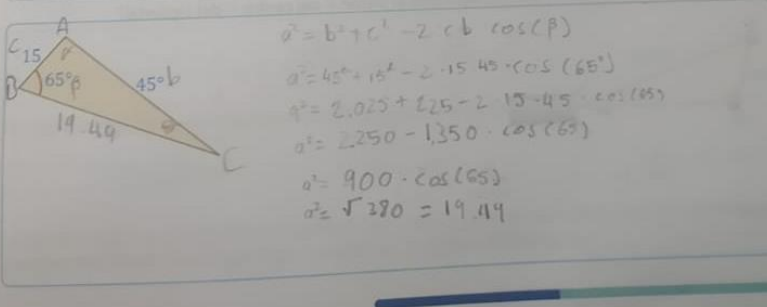 A
C
15
α
B
65° β
45° b
19.49
θ
C
a² = b² + c² - 2 cb cos(β)
a² = 45² + 15² - 2 · 15 45 · cos (65°)
a² = 2.025 + 225 - 2 15 · 45 · cos(65)
a² = 2250 - 1350 · cos(65)
a² = 900 · cos(65)
a² = √380 = 19.49